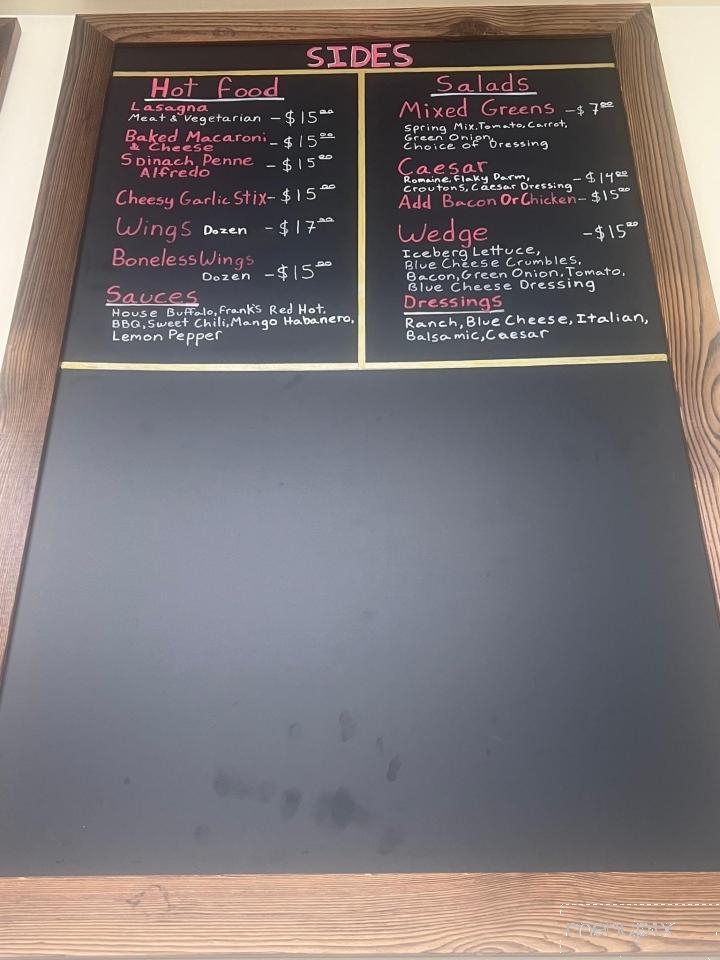 SIDES
Hot food
Lasagna
Meat & Vegetarian - $15.00
Baked Macaroni
& Cheese - $15.00
Spinach, Penne - $15.00
Alfredo
Cheesy Garlic Stix - $15.00
Wings Dozen - $17.00
Boneless Wings
Dozen - $15.00
Sauces
House Buffalo, Frank's Red Hot,
BBQ, Sweet Chili, Mango Habanero,
Lemon Pepper
Salads
Mixed Greens - $7.00
Spring Mix, Tomato, Carrot,
Green Onion,
Choice of Dressing
Caesar
Romaine, Flaky Parm, - $14.00
Croutons, Caesar Dressing
Add Bacon Or Chicken - $15.00
Wedge - $15.00
Iceberg Lettuce,
Blue Cheese Crumbles,
Bacon, Green Onion, Tomato,
Blue Cheese Dressing
Dressings
Ranch, Blue Cheese, Italian,
Balsamic, Caesar